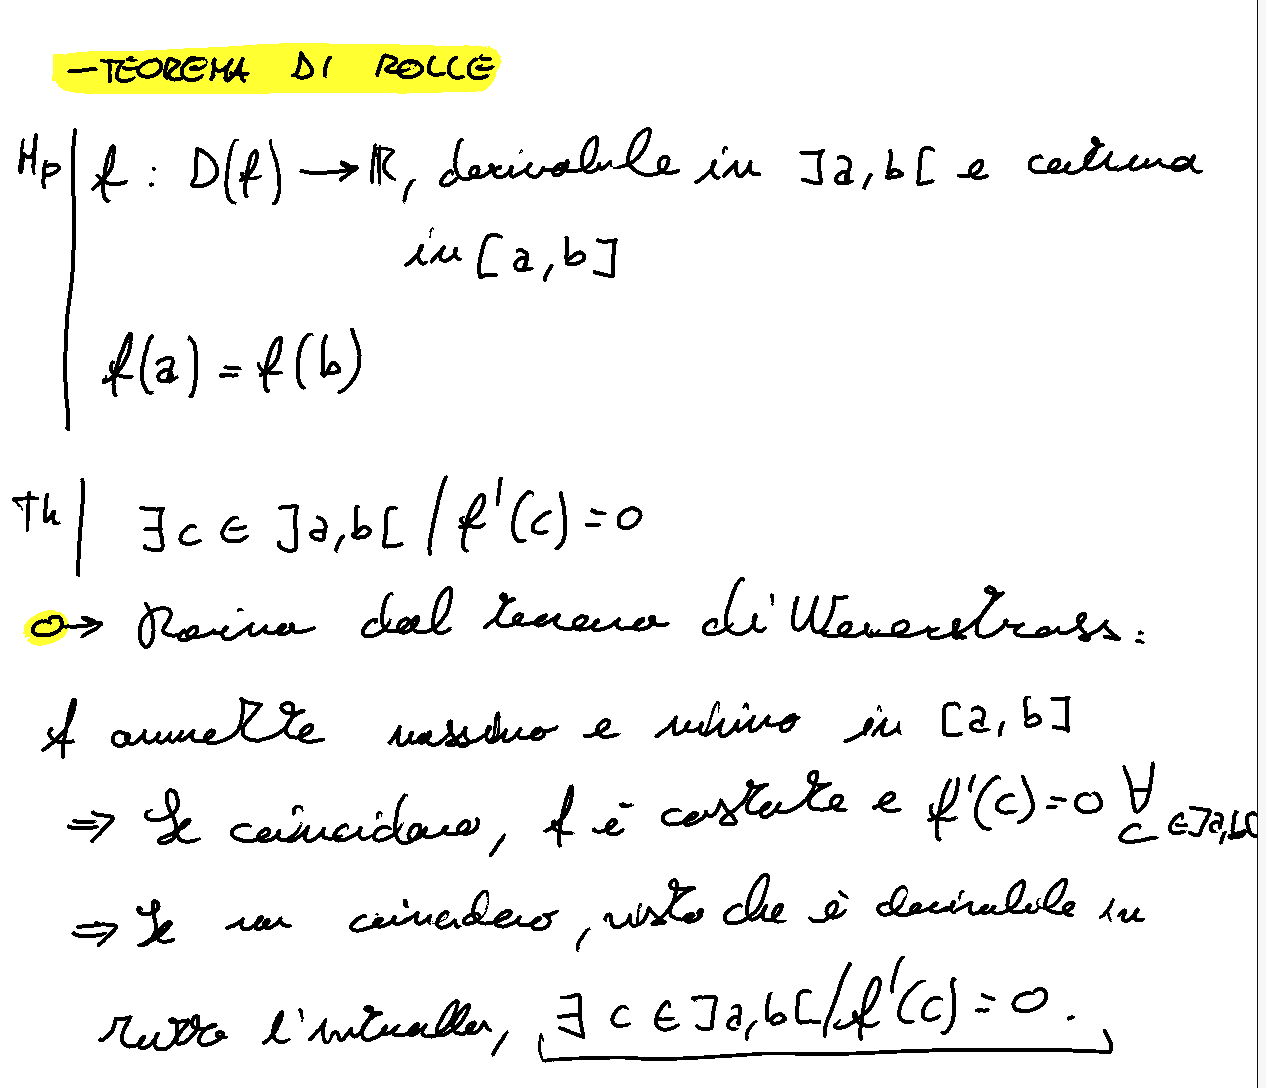 - TEOREMA DI ROLLE
Hp f : D(f) → ℝ, derivabile in ]a,b[ e continua
in [a,b]
f(a) = f(b)
Th ∃ c ∈ ]a,b[ / f'(c) = 0
→ dal teorema di Weierstrass:
f ammette massimo e minimo in [a,b]
⇒ Se coincidono, f è costante e f'(c)=0 ∀ c ∈ ]a,b[
⇒ Se non coincidono, visto che è derivabile in
tutto l'intervallo, ∃ c ∈ ]a,b[ / f'(c) = 0.